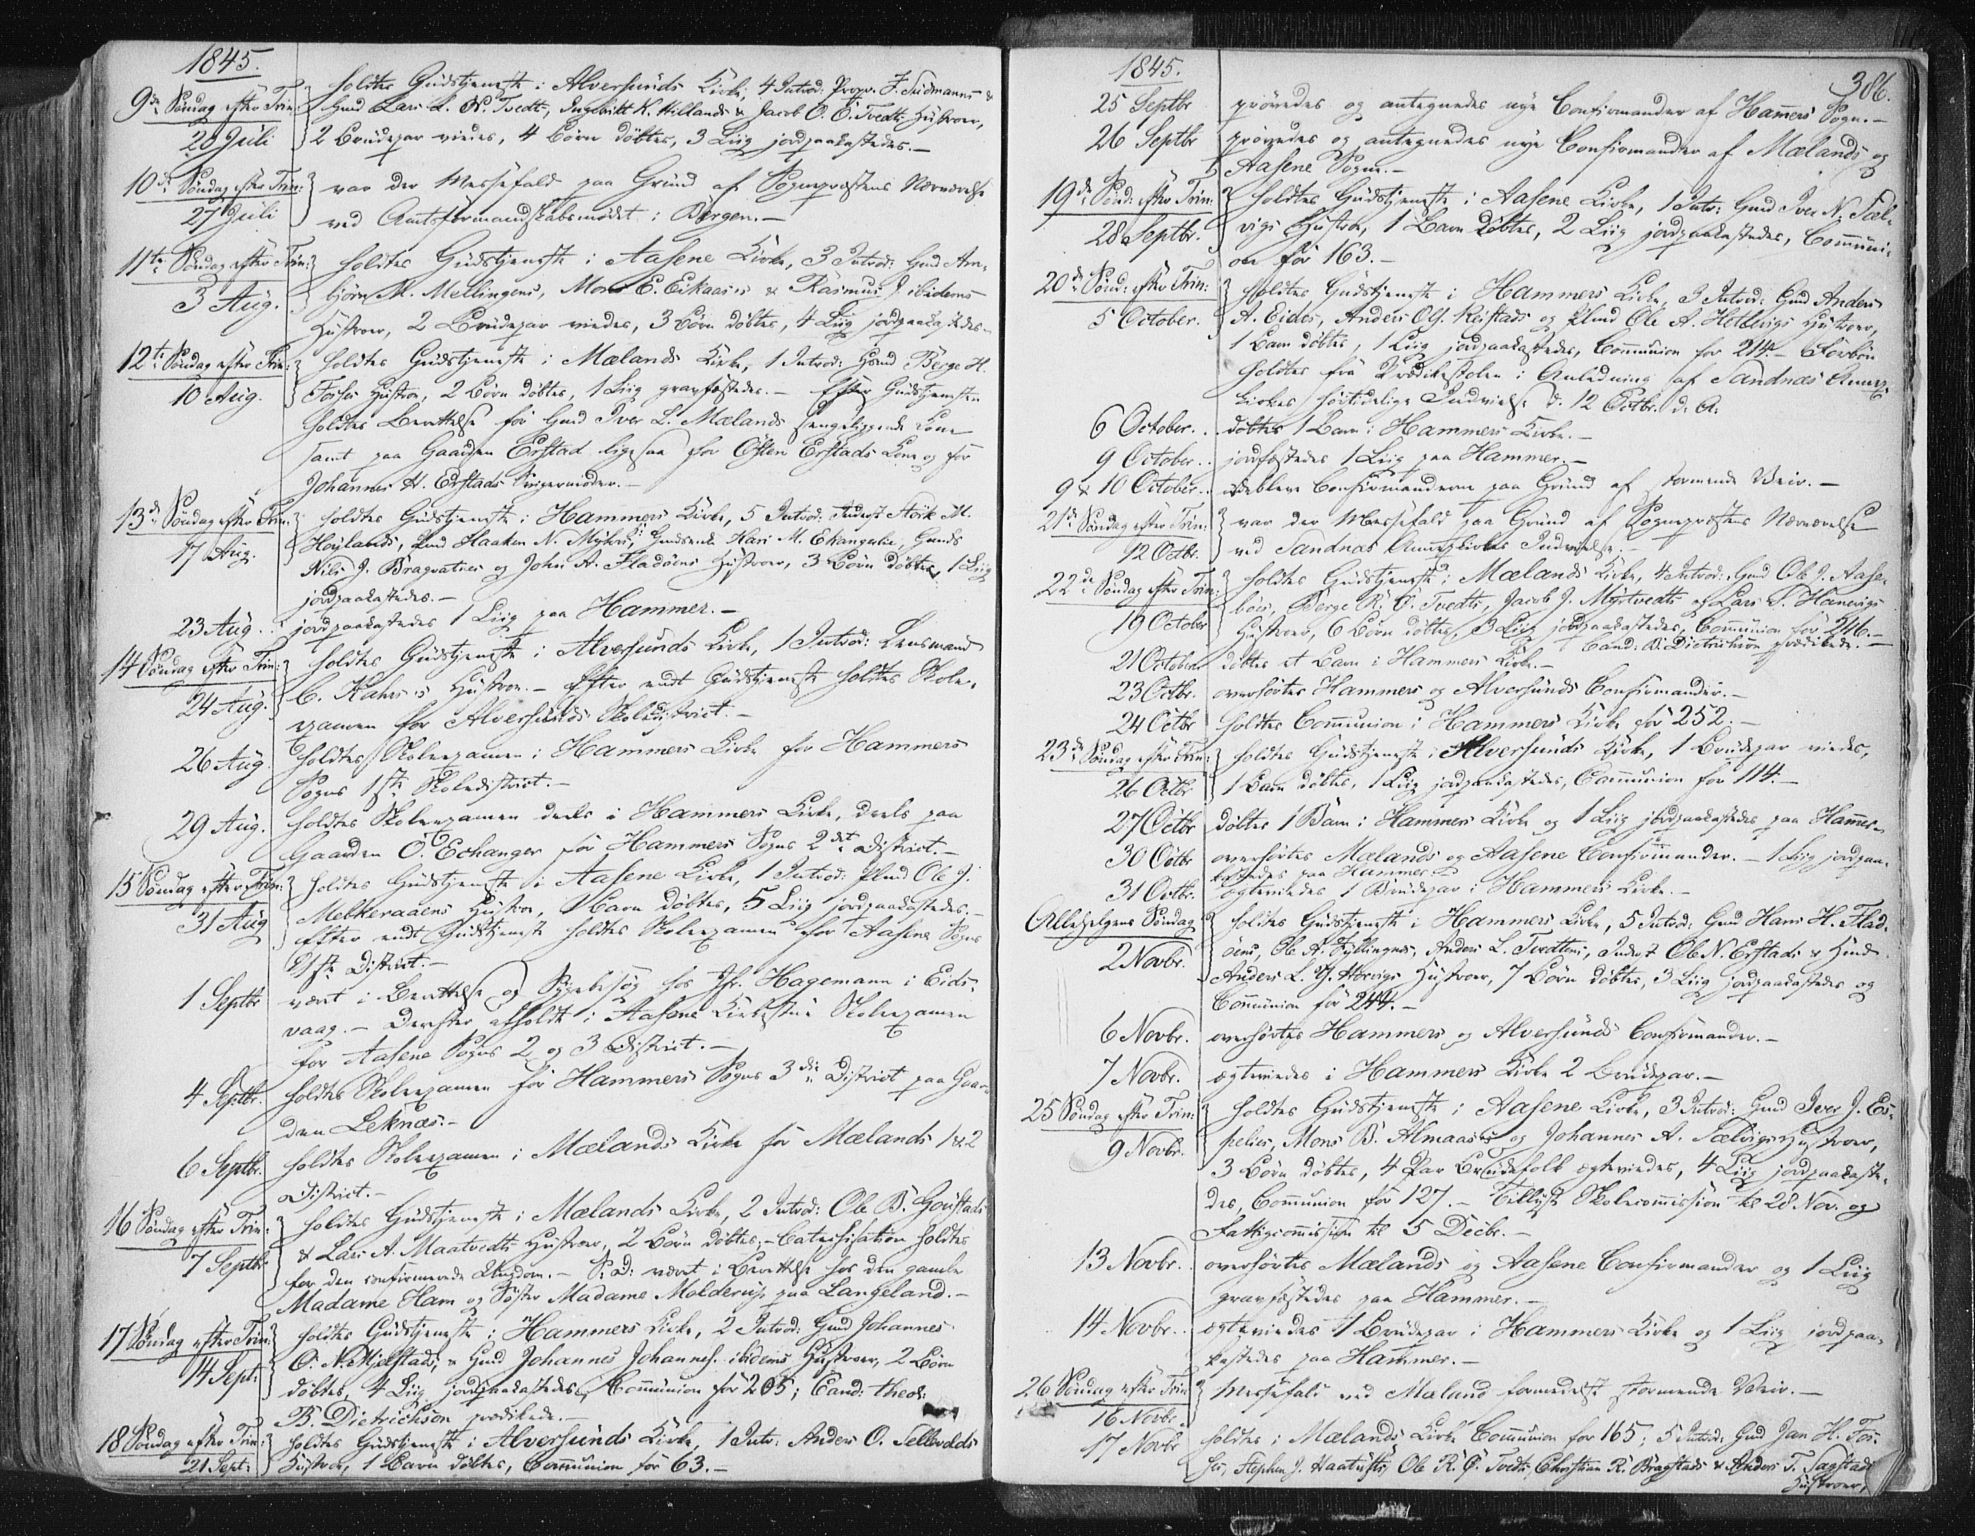 1845.
9de Søndag efter Trin:
20 Juli
holdtes Gudstjeneste i Alversunds Kirke, 4 Introd: Propr. F. Sudmanns &
Gmd Lars L. N. Tvedts, Ingebrikt K. Hillands & Jacob O. Ö. Tvedts Hustroer,
2 Brudepar viedes, 4 Børn døbtes, 3 Liig jordpaakastedes.—
10de Søndag efter Trin:
27 Juli
var der Messefald paa Grund af Sognepræstens Nærværelse
ved Amtsformandskabsmødet i Bergen.—
11te Søndag efter Trin:
3 Aug.
holdtes Gudstjeneste i Aasene Kirke, 3 Introd: Gmd Arn-
bjørn M. Mellingens, Mons E. Eikaas's & Rasmus J. ibidems
Hustroer, 2 Brudepar viedes, 3 Børn døbtes, 4 Liig jordpaakastedes.—
12te Søndag efter Trin:
10 Aug.
holdtes Gudstjeneste i Mælands Kirke, 1 Introd: Hsmd Børge H.
Fosses Hustroe, 2 Børn døbtes, 1 Liig gravfæstedes.— Efter Gudstjenesten
holdtes Berettelse for Gmd Iver L. Mælands sengeliggende Kone
samt paa Gaarden Erstad ligesaa for Østen Erstads Kone og for
Johannes H. Erstads Svigermoder.—
13de Søndag efter Trin:
17 Aug.
holdtes Gudstjeneste i Hammers Kirke, 5 Introd: Inderst Askik M.
Høylands, Plmd Haaken N. Myhres, Gmdsenke Kari M. Ekangerhei, Gmds
Nils J. Bragvatnes og John A. Fladøens Hustroer, 3 Børn døbtes, 1 Liig
jordpaakastedes.—
23 Aug. jordpaakastedes 1 Liig paa Hammer.—
14 Søndag efter Trin:
24 Aug.
holdtes Gudstjeneste i Alversunds Kirke, 1 Introd: Lensmand
C. Kahrs's Hustroe.— Efter endt Gudstjeneste holdtes Skole-
examen for Alversunds Skoledistrict.—
26 Aug. holdtes Skoleexamen i Hammers Kirke for Hammers
Sogns 1ste Skoledistrict.—
29 Aug. holdtes Skoleexamen deels i Hammers Kirke, deels paa
Gaarden Ö. Echanger for Hammers Sogns 2det District.—
15 Søndag efter Trin:
31 Aug
holdtes Gudstjeneste i Aasene Kirke, 1 Introd: Plmd Ole J.
Metkeraaens Hustroe, 1 Barn døbtes, 5 Liig jordpaakastedes.—
Efter endt Gudstjeneste holdtes Skoleexamen for Aasene Sogns
1ste District.—
1 Septbr været i Berettelse og Sygebesøg hos Jfr. Hagemann i Eids-
vaag.— Derefter afholdt i Aasene Kirkestue Skoleexamen
for Aasene Sogns 2 og 3 District.—
4 Septbr. holdtes Skoleexamen for Hammers Sogns 3die District paa Gaar-
den Leknæs.—
6 Septbr. holdtes Skoleexamen i Mælands Kirke for Mælands 1 & 2
District.—
16 Søndag efter Trin:
7 Septbr
holdtes Gudstjeneste i Mælands Kirke, 2 Introd: Ole B. Goustads
& Lars A. Maatvedts Hustroer, 2 Børn døbtes;— Catechisation holdtes
for den confirmerede Ungdom.— S. D. været i Berettelse hos den gamle
Madame Ham og Søster Madame Molderup paa Langeland.—
17 Søndag efter Trin:
14 Sept:
holdtes Gudstjeneste i Hammers Kirke, 2 Introd: Gmd Johannes
O. N. Mjelstads, & Hmd Johannes Johannes. ibidems Hustroer, 2 Børn
døbtes, 4 Liig jordpaakastedes, Communion for 205; Cand: theol:
B. Dietrichson prædikede.—
18 Søndag efter Trin:
21 Sept:
holdtes Gudstjeneste i Alversunds Kirke, 1 Intr: Anders O. Sellevolds
Hustroe, 1 Barn døbtes, Communion for 63.—
386.
1845.
25 Septbr prøvedes og antegnedes nye Confirmander af Hamers Sogn.—
26 Septbr prøvedes og antegnedes nye Confirmander af Mælands og
Aasene Sogn.—
19de Sønd: efter Trin:
28 Septbr.
holdtes Gudstjeneste i Aasene Kirke, 1 Intr: Gmd Iver N. Sæl-
vigs Hustroe, 1 Barn døbtes, 2 Liig jordpaakastedes, Communi-
on for 163.—
20de Sønd: efter Trin:
5 October.
holdtes Gudstjeneste i Hammers Kirke, 3 Introd: Gmd Anders
A. Eides, Anders Ols. Reistads og Plmd Ole A. Hetlevigs Hustroer,
1 Barn døbtes, 1 Liig jordpaakastedes, Communion for 214.— Forbøn
holdtes fra Prædikestolen i Anledning af Sandnæs Annex-
kirkes høitidelige Indvielse d. 12 Octbr. d: A:
6 October. døbtes 1 Barn i Hammers Kirke.—
9 October.. jordfæstedes 1 Liig paa Hammer.—
9 & 10 October.. udebleve Confirmanderne paa Grund af stormende Veir.—
21de Søndag efter Trin:
12 Octbr.
var der Messefald paa Grund af Sognepræstens Nærværelse
ved Sandnæs Annexkirkes Indvielse.—
22de Søndag efter Trin:
19 October
holdtes Gudstjeneste i Mælands Kirke, 4 Introd: Gmd Ole J. Aase-
bøes, Børge R. Ö. Tvedts, Jacob J. Mystvedts og Lars S. Hanevigs
Hustroer, 6 Børn døbtes, 3 Liig jordpaakastedes, Communion for 246.—
Cand. B. Dietrichson prædikede.—
21 October døbtes et Barn i Hammers Kirke.—
23 Octbr. overhørtes Hammers og Alversunds Confirmander.—
24 Octbr holdtes Communion i Hammers Kirke for 252.—
23de Søndag efter Trin:
26 Octbr
holdtes Gudstjeneste i Alversunds Kirke, 1 Brudepar viedes,
1 Barn døbtes, 1 Liig jordpaakastedes, Communion for 114.—
27 Octbr døbtes 1 Barn i Hammers Kirke og 1 Liig jordpaakastedes paa Hamer.—
30 Octbr overhørtes Mælands og Aasene Confirmander.— 1 Liig jordpaa-
kastedes paa Hammer.
31 Octbr. ægteviedes 1 Brudepar i Hammers Kirke.—
Allehelgens Søndag
2 Novbr.
holdtes Gudstjeneste i Hammers Kirke, 5 Introd: Gmd Hans H. Flad-
øens, Ole A. Fyllingnæs, Anders L. Tvedtens, Inderst Ole N. Erstads & Hmd
Anders L. Y. Horvigs Hustroer, 7 Børn døbtes, 3 Liig jordpaakastedes og
Communion for 244.—
6 Novbr. overhørtes Hammers og Alversunds Confirmander.—
7 Novbr. ægteviedes i Hammers Kirke 2 Brudepar.—
25 Søndag efter Trin:
9 Novbr.
holdtes Gudstjeneste i Aasene Kirke, 3 Introd: Gmd Iver J. Es-
pelies, Mons B. Almaas's og Johannes A. Sælvigs Hustroer,
3 Børn døbtes, 4 Par Brudefolk ægteviedes, 4 Liig jordpaakaste-
des, Communion for 127.— Tillyst Skolecommission til 28 Nov. og
Fattigcommission til 5 Decbr.—
13 Novbr. overhørtes Mælands og Aasene Confirmander og 1 Liig
gravfæstedes paa Hammer.—
14 Novbr. ægteviedes 1 Brudepar i Hammers Kirke og 1 Liig jordpaa-
kastedes paa Hammer.—
26 Søndag efter Trin
16 Novbr.
Messefald ved Mæland formedelst stormende Veir.—
17 Novbr holdtes i Mælands Kirke Communion for 165; 5 Introd: Gmd Jan H. Fos-
ses, Stephen J. Haatufts, Ole R. Ö. Tvedts, Christian R. Bragstads & Anders T. Sagstads
Hustroer,